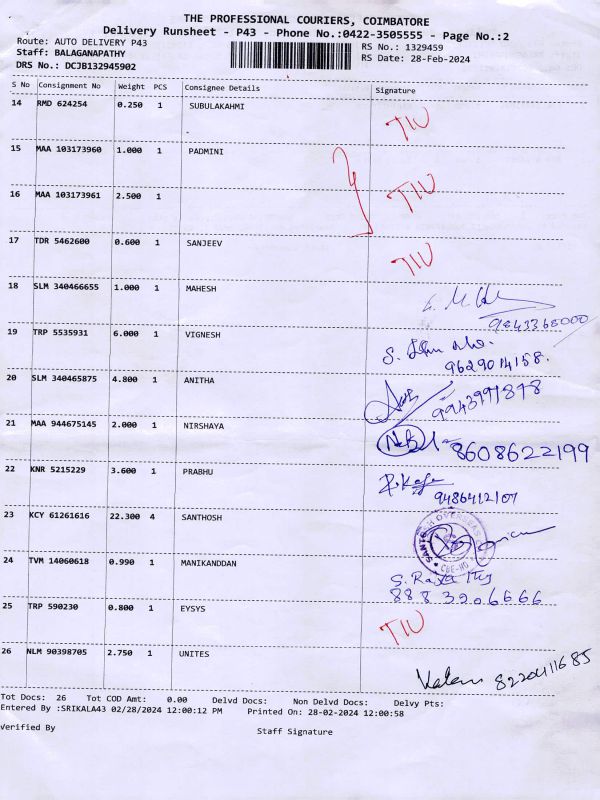 THE PROFESSIONAL COURIERS, COIMBATORE
Delivery Runsheet - P43 - Phone No.:0422-3505555 - Page No.:2
Route: AUTO DELIVERY P43 RS No.: 1329459
Staff: BALAGANAPATHY RS Date: 28-Feb-2024
DRS No.: DCJB132945902
S No Consignment No Weight PCS Consignee Details Signature
14 RMD 624254 0.250 1 SUBULAKAHMI
-
15 MAA 103173960 1.000 1 PADMINI
16 MAA 103173961 2.500 1
17 TDR 5462600 0.600 1 SANJEEV
18 SLM 340466655 1.000 1 MAHESH
9843368000
19 TRP 5535931 6.000 1 VIGNESH
9629014158.
20 SLM 340465875 4.800 1 ANITHA
9943991878
21 MAA 944675145 2.000 1 NIRSHAYA
8608622199
22 KNR 5215229 3.600 1 PRABHU
9486412107
23 KCY 61261616 22.300 4 SANTHOSH
CBE-HO
24 TVM 14060618 0.990 1 MANIKANDDAN
8883906666
25 TRP 590230 0.800 1 EYSYS
26 NLM 90398705 2.750 1 UNITES
8220411685
Tot Docs: 26 Tot COD Amt: 0.00 Delvd Docs: Non Delvd Docs: Delvy Pts:
Entered By :SRIKALA43 02/28/2024 12:00:12 PM Printed On: 28-02-2024 12:00:58
Verified By Staff Signature